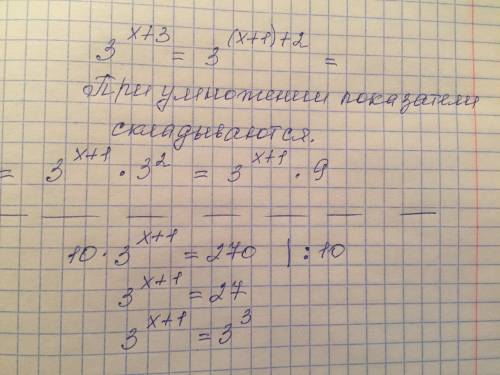 3^{x+3} = 3^{(x+1)+2} =
При умножении показатели
складываются.
= 3^{x+1} · 3^2 = 3^{x+1} · 9
10 · 3^{x+1} = 270 | : 10
3^{x+1} = 27
3^{x+1} = 3^3